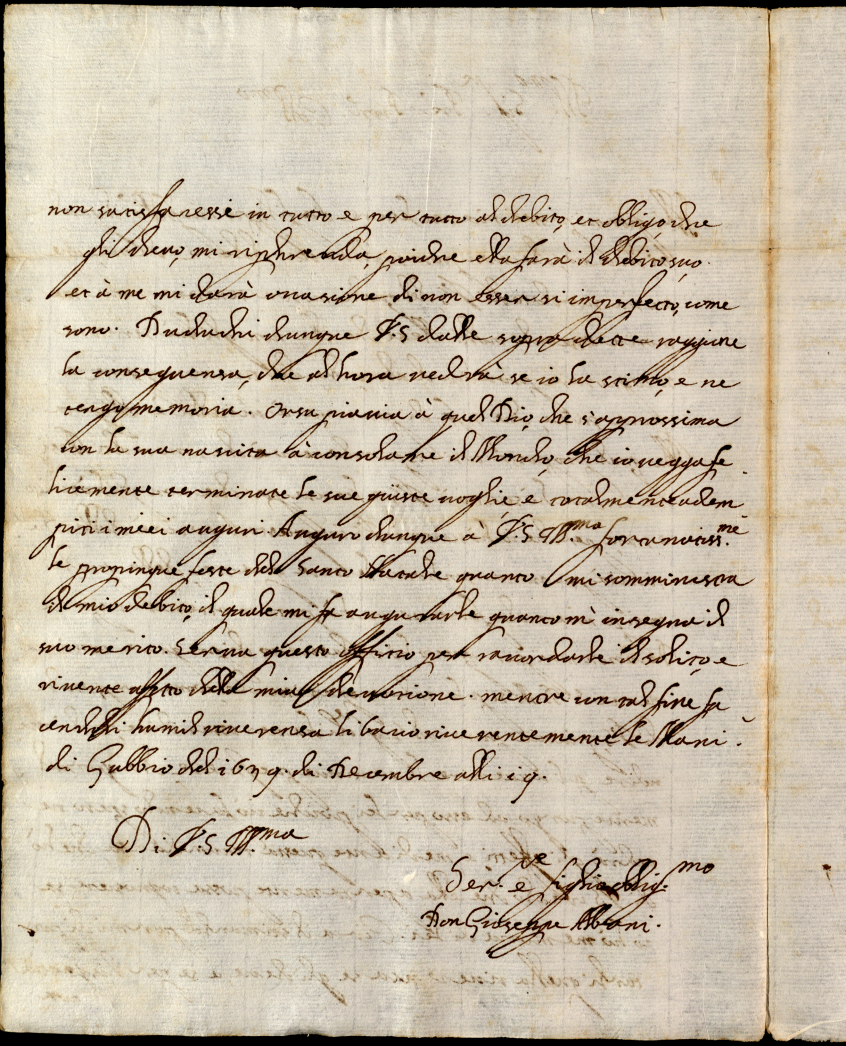 non satisfacessi in tutto e per tutto al debito, et obligo che
gli devo, mi riprhenda, poiche ella farà il debito suo.
et à me mi darà occasione di non esser si imperfecto, come
sono. Deduchi dunque V.S dalle sopra dette raggione
la conseguensa, che al hora vedrà se io la stimo, e ne
tengo memoria. Orsu piaccia à quel Dio, che s'approssima
con la sua nascita à consolare il Mondo che io vegga fe
licemente terminate le sue giuste voglie, e totalmente adem
piti i miei auguri Auguro dunque à V.S Ill.ma fortunatiss.me
le propinque feste del Santo Natale quanto mi somministra
il mio debito, il quale mi fa augurarle quanto mi insegna il
suo merito. Serva questo officio per racordarle il solito, e
rivente affetto della mia devotione. mentre con tal fine fa
cendoli humil riverensa li bacio riverentemente le Mani.
di Gubbio del 1679. di Decembre alli 19.
Di V.S Ill.ma
Ser.e e figlio oblig.mo
Don Giuseppe Albani.